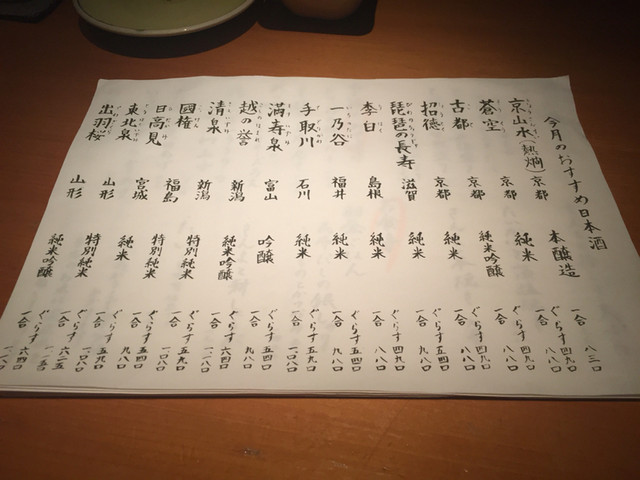 今月のおすすめ日本酒
京山水(熱燗) 京都 本醸造 一合 八三〇
蒼空 京都 純米 ぐらす 四九〇
一合 八八〇
古都 京都 純米吟醸 ぐらす 四九〇
一合 八八〇
招徳 京都 純米 ぐらす 四九〇
一合 八八〇
琵琶の長寿 滋賀 純米 ぐらす 四九〇
一合 八八〇
李白 島根 純米 ぐらす 四九〇
一合 八八〇
一乃谷 福井 純米 ぐらす 五四〇
一合 九八〇
手取川 石川 純米 ぐらす 五九〇
一合 一〇八〇
満寿泉 富山 吟醸 ぐらす 五四〇
一合 九八〇
越の誉 新潟 純米吟醸 ぐらす 六四〇
一合 一一八〇
清泉 新潟 特別純米 ぐらす 五九〇
一合
國権 福島 特別純米 ぐらす 五四〇
一合 九八〇
日高見 宮城 純米 ぐらす 五九〇
一合 一〇八〇
東北泉 山形 特別純米 ぐらす 六二五
一合 一一五〇
出羽桜 山形 純米吟醸 ぐらす 六四〇
一合 一一八〇